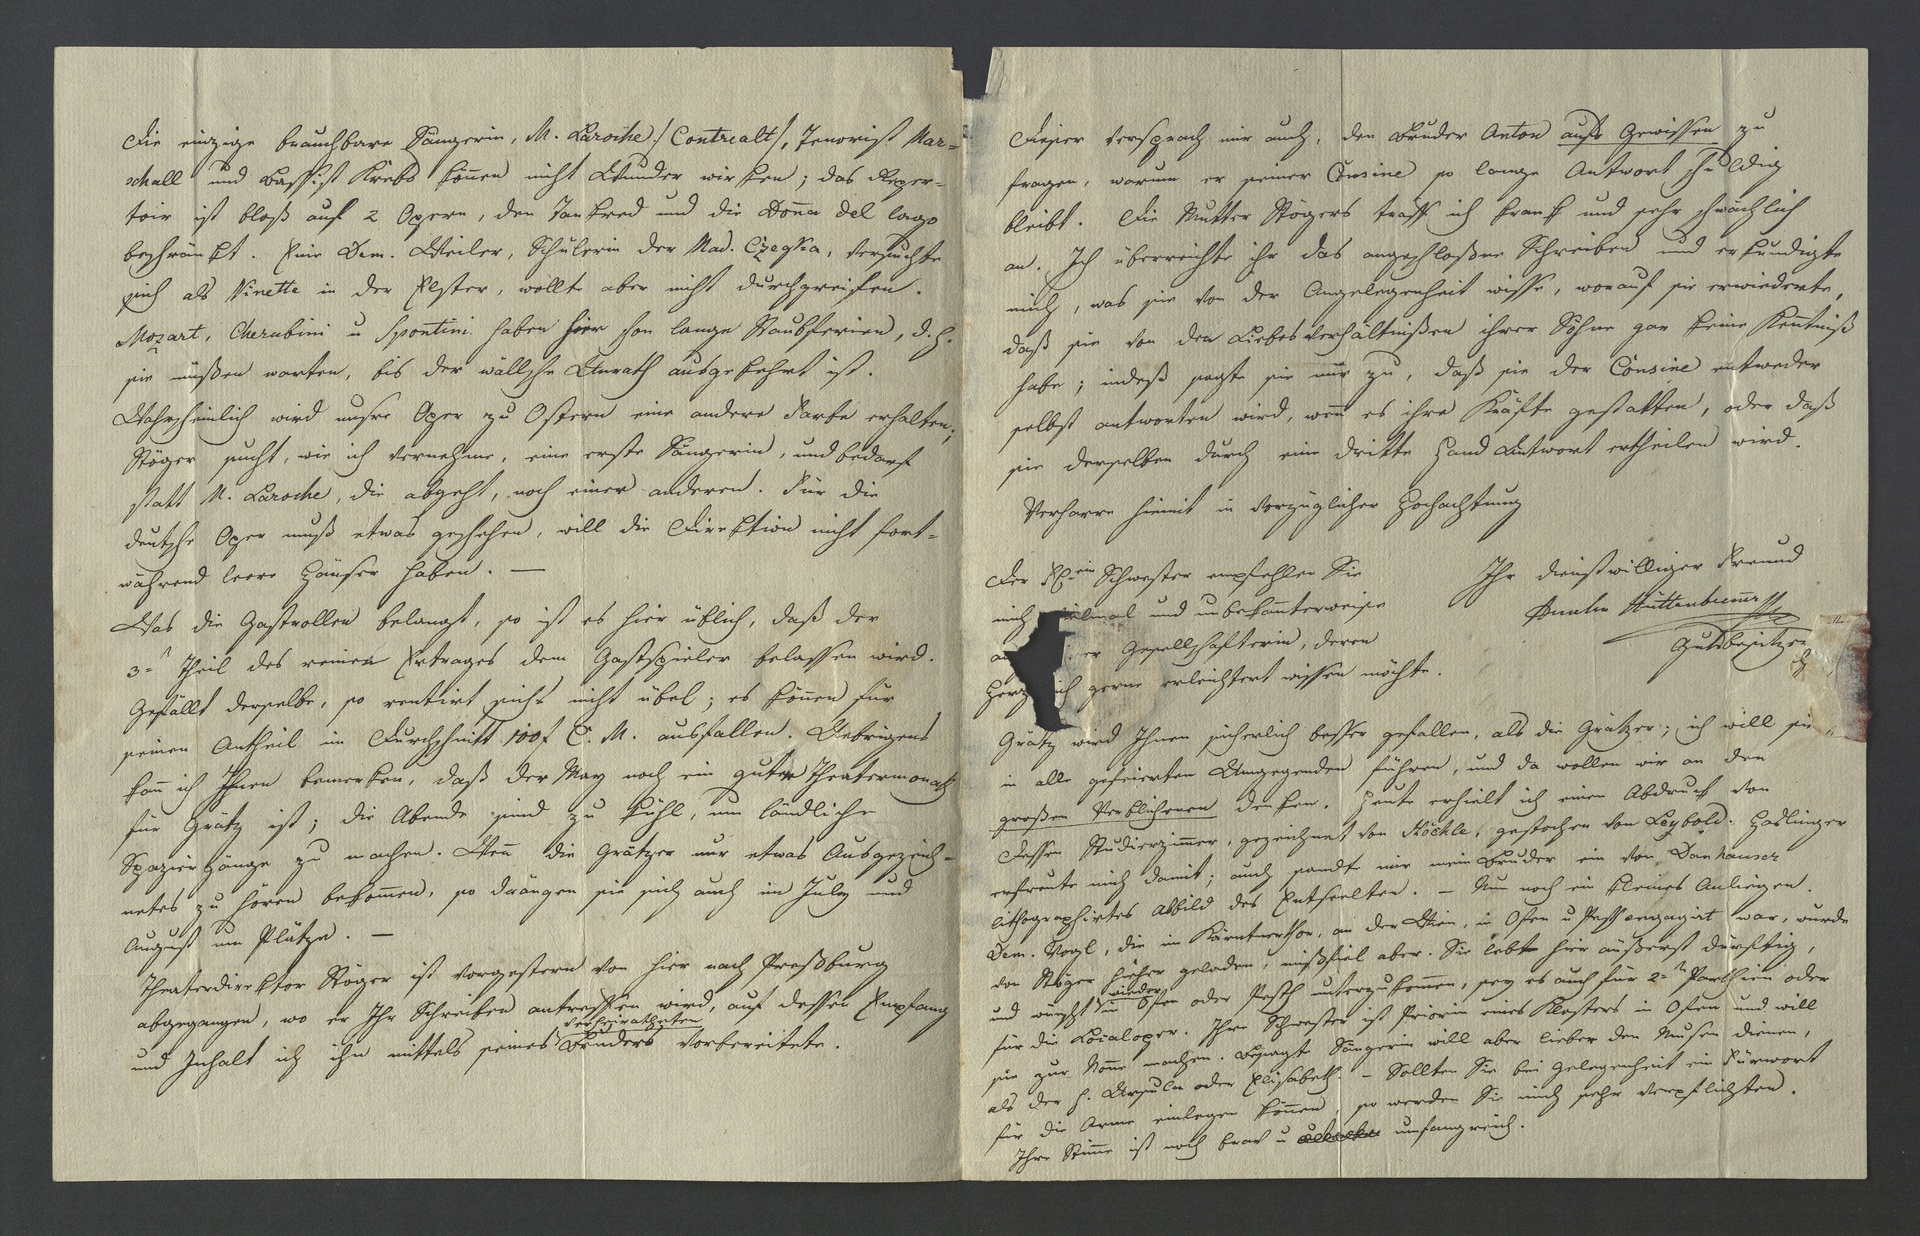 Die einzige brauchbare Sängerin, M. Laroche /: Contrealt :/, Tenorist Mar=
schall und Bassist Krebs können nicht Wunder wirken; das Reper=
toir ist bloß auf 2 Opern, den Tankred und die Doña del lago
beschränkt. Eine Dem. Weiler, Schülerin der Mad. Czegka, versuchte
sich als Ninette in der Elster, wollte aber nicht durchgreifen.
Mozart, Cherubini u Spontini haben hier schon lange Staubferien, d. h.
sie müßen warten, bis der wällsche Unrath ausgekehrt ist.
Wahrscheinlich wird unsre Oper zu Ostern eine andere Farbe erhalten;
Stöger sucht, wie ich vernehme, eine erste Sängerin, und bedarf
statt M. Laroche, die abgeht, noch einer anderen. Für die
deutsche Oper muß etwas geschehen, will die Direktion nicht fort=
während leere Häuser haben. —
Was die Gastrollen belangt, so ist es hier üblich, daß der
3= Theil des reinen Ertrages dem Gastspieler belassen wird.
Gefällt derselbe, so rentirt sichs nicht übel; es können für
seinen Antheil im Durchschnitt 100f C. M. ausfallen. Uebrigens
kann ich Ihnen bemerken, daß der May noch ein guter Theatermonath
für Grätz ist; die Abende sind zu kühl, um ländliche
Spaziergänge zu machen. Wenn die Grätzer nur etwas Ausgezeich=
netes zu hören bekommen, so drängen sie sich auch im July und
August um Plätze. —
Theaterdirektor Stöger ist vorgestern von hier nach Preßburg
abgegangen, wo er Ihr Schreiben antreffen wird, auf dessen Empfang
und Inhalt ich ihn mittels seines verheiratheten Bruders vorbereitete.
Dieser versprach mir auch, den Bruder Anton aufs Gewissen zu
fragen, warum er seiner Cousine so lange Antwort schuldig
bleibt. Die Mutter Stögers traff ich krank und sehr schwächlich
an. Ich überreichte ihr das angeschloßne Schreiben und erkundigte
mich, was sie von der Angelegenheit wisse, worauf sie erwiederte,
daß sie von den Liebesverhältnißen ihrer Söhne gar keine Kenntniß
habe; indeß sagte sie mir zu, daß sie der Cousine entweder
selbst antworten wird, wenn es ihre Kräfte gestatten, oder daß
sie derselben durch eine dritte Hand Antwort ertheilen wird.
Verharre hiemit in vorzüglicher Hochachtung
Ihr dienstwilliger Freund
Anselm Hüttenbrenner
Gutsbesitzer
Der Schwester empfehlen Sie
mich und unbekannterweise
er Gesellschafterin, deren
Herz ich gerne erleichtert wissen möchte.
Grätz wird Ihnen sicherlich besser gefallen, als die Grätzer; ich will sie
in alle gefeierten Umgegenden führen, und da wollen wir an den
großen Verblichenen denken. Heute erhielt ich einen Abdruck von
dessen Studierzimmer, gezeichnet von Höchle, gestochen von Leybold. Haslinger
erfreute mich damit; auch sandte mir mein Bruder ein von Danhauser
lithographirtes Abbild des Entseelten. — Nun noch ein kleines Anliegen.
Dem. Vogl, die im Kärntnerthor, an der Wien, in Ofen u Pesth engagirt war, wurde
von Stöger hieher geladen, mißfiel aber. Sie lebt hier äußerst dürftig,
und wünscht wieder in Ofen oder Pesth unterzukommen, sey es auch für 2= Parthien oder
für die Localoper. Ihre Schwester ist Priorin eines Klosters in Ofen und will
sie zur Nonne machen. Besagte Sängerin will aber lieber den Musen dienen,
als der h. Ursula oder Elisabeth. — Sollten Sie bei Gelegenheit ein Fürwort
für die Arme einlegen können, so werden Sie mich sehr verpflichten.
Ihre Stimme ist noch brav u umfangreich.